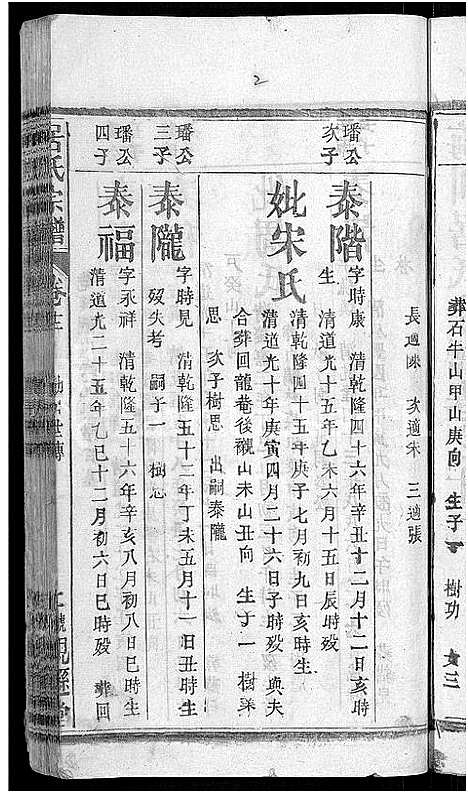 2
葬石牛山甲山庚向 生子一 樹功 女三
長適陳 次適宋 三適張
璠公次子
泰階 字時康 清乾隆四十六年辛丑十二月十二日亥時
生 清道光十五年乙未六月十五日辰時歿
妣宋氏 清乾隆四十五年庚子七月初九日亥時生
清道光十年庚寅四月二十六日子時歿 與夫
合葬回龍菴後襯山未山丑向 生子一 樹
思 次子樹思 出嗣泰隴
璠公三子
泰隴 字時見 清乾隆五十二年丁未五月十一日丑時生
歿失考 嗣子一 樹思
璠公四子
泰福 字永祥 清乾隆五十六年辛亥八月初八日巳時生
清道光二十五年乙巳十二月初六日巳時歿 葬回
居氏宗譜 卷 世傳